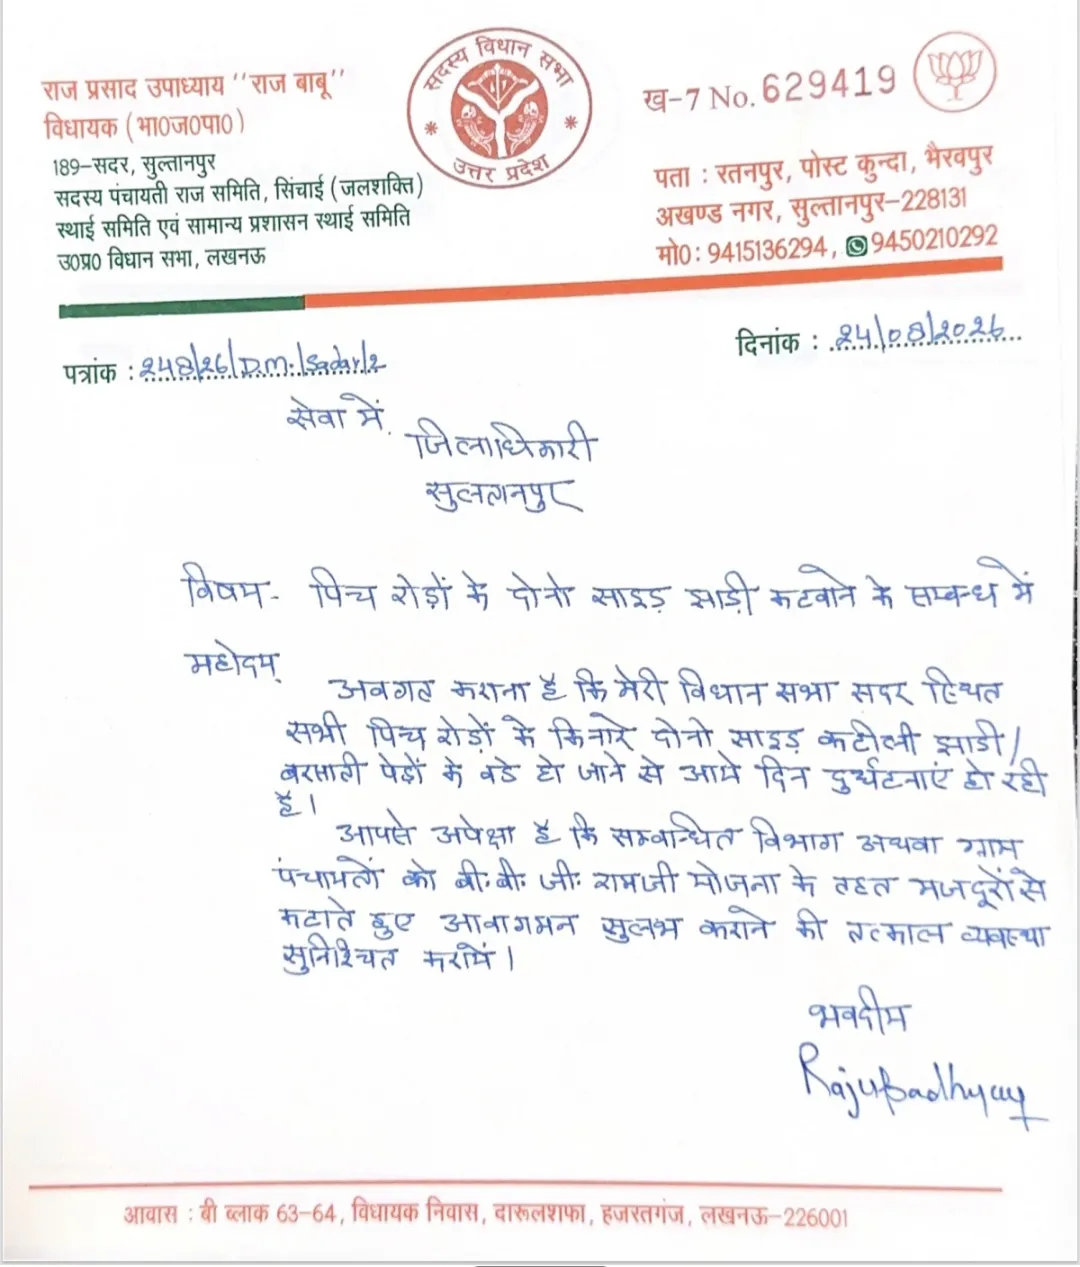 राज प्रसाद उपाध्याय "राज बाबू"
विधायक (भा0ज0पा0)
189-सदर, सुल्तानपुर
सदस्य पंचायती राज समिति, सिंचाई (जलशक्ति)
स्थाई समिति एवं सामान्य प्रशासन स्थाई समिति
उ0प्र0 विधान सभा, लखनऊ
सदस्य विधान सभा
उत्तर प्रदेश
ख-7 No. 629419
पता : रतनपुर, पोस्ट कुन्दा, भैरवपुर
अखण्ड नगर, सुल्तानपुर-228131
मो0: 9415136294, 9450210292
पत्रांक : 248/26/D.M./Sadar/2
दिनांक : 24/08/2026
सेवा में,
जिलाधिकारी
सुलतानपुर
विषय- पिच रोड़ों के दोनो साइड़ झाड़ी कटवाने के सम्बन्ध में
महोदय,
अवगत कराना है कि मेरी विधान सभा सदर स्थित
सभी पिच रोड़ों के किनारे दोनो साइड़ कटीली झाडी/
बरसाती पेड़ों के बडे हो जाने से आये दिन दुर्घटनाएं हो रही
है।
आपसे अपेक्षा है कि सम्बन्धित विभाग अथवा ग्राम
पंचायतों को बी. बी. जी. रामजी योजना के तहत मजदूरों से
कटाते हुए आवागमन सुलभ कराने की तत्काल व्यवस्था
सुनिश्चित करायें।
भवदीय
RajuPadhyay
आवास : बी ब्लाक 63-64, विधायक निवास, दारूलशफा, हजरतगंज, लखनऊ-226001